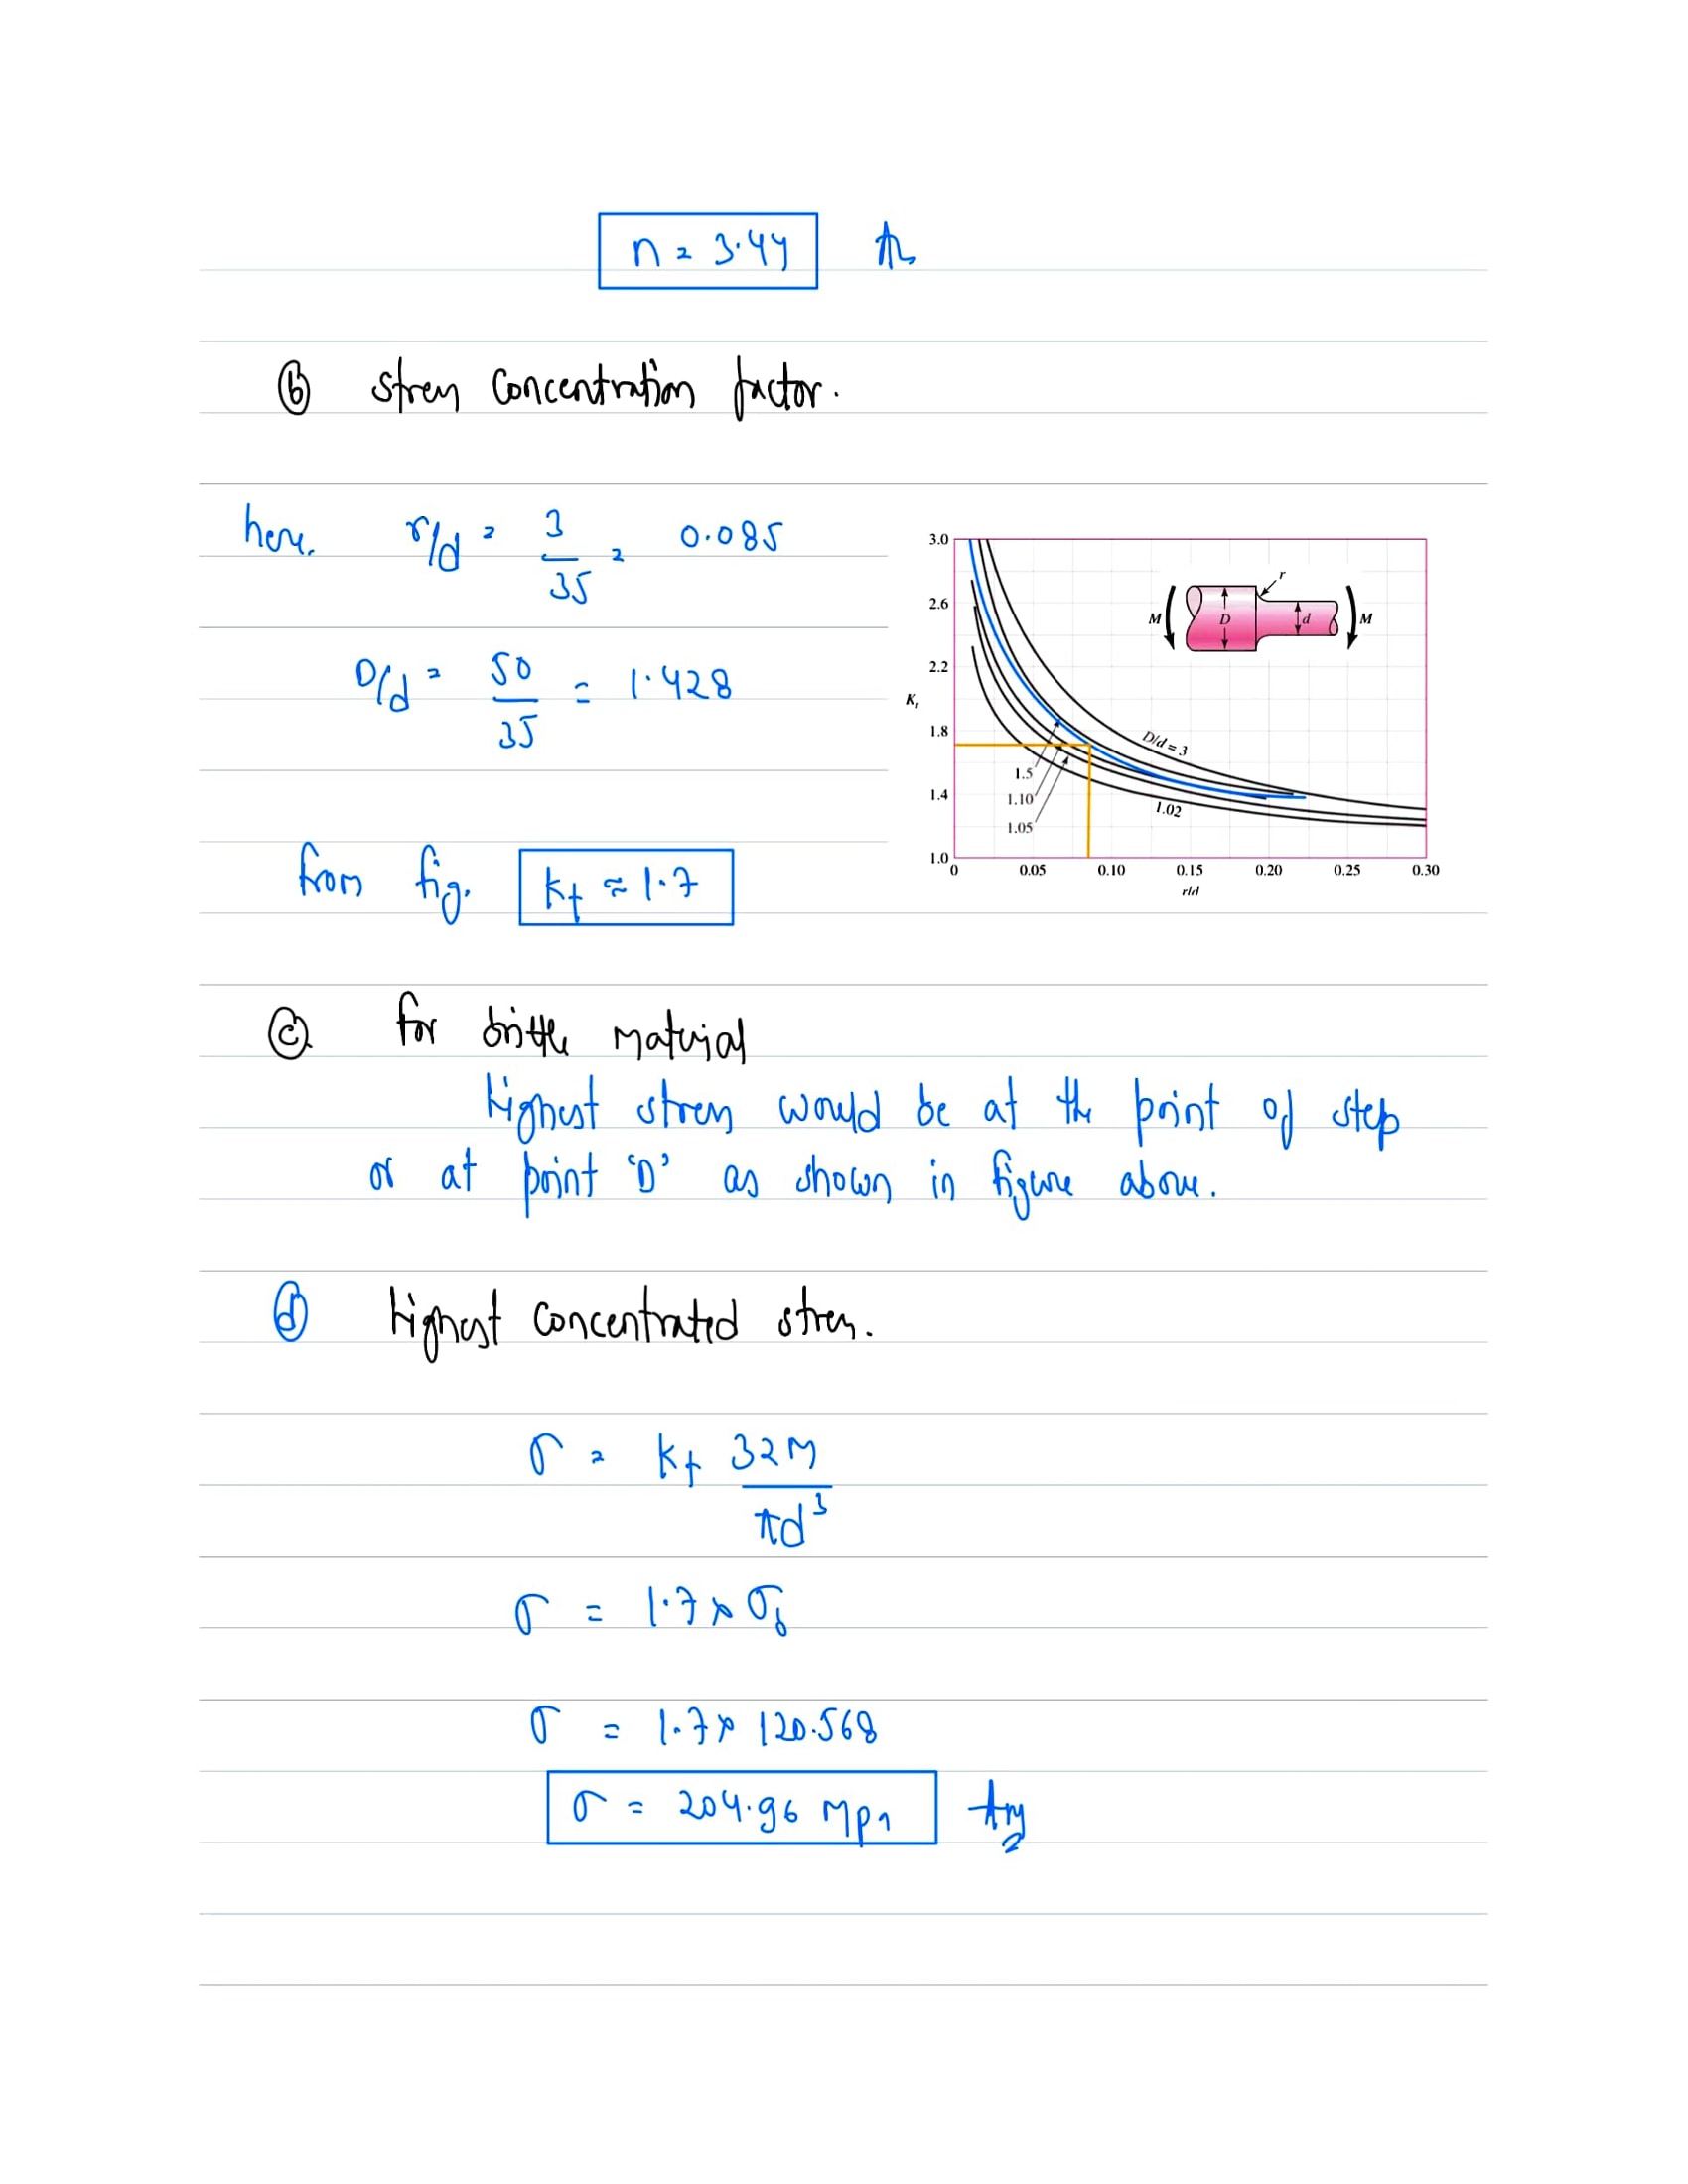 n = 3.44 As
(b) stress Concentration factor.
here, r/d = 3/35 = 0.085
D/d = 50/35 = 1.428
from fig. Kt ≈ 1.7
3.0
2.6
2.2
1.8
1.4
1.0
Kt
0 0.05 0.10 0.15 0.20 0.25 0.30
r/d
r
M D d M
D/d = 3
1.5
1.10
1.05
1.02
(c) for brittle material
highest stress would be at the point of step
or at point 'D' as shown in figure above.
(d) highest concentrated stress.
σ = Kt 32M/πd³
σ = 1.7 × σb
σ = 1.7 × 120.568
σ = 204.96 Mpa Ans